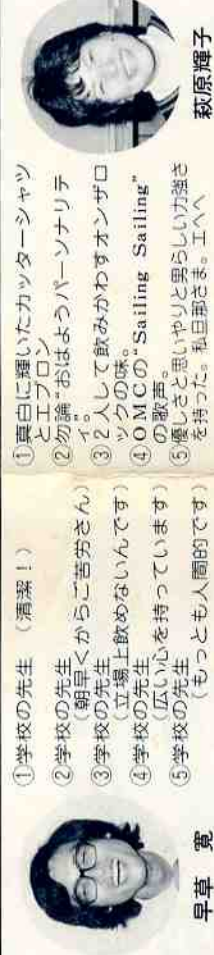 早草 寛
①学校の先生 (清潔！)
②学校の先生
(朝早くからご苦労さん)
③学校の先生
(立場上飲めないんです)
④学校の先生
(広い心を持っています)
⑤学校の先生
(もっとも人間的です)
①真白に輝いたカッターシャツ
とエプロン
②勿論“おはようパーソナリテ
ィ”。
③２人して飲みかわすオンザロ
ックの味。
④OMCの“Sailing Sailing”
の歌声。
⑤優しさと思いやりと男らしい力強さ
を持った。私旦那さま。エヘヘ
萩原輝子